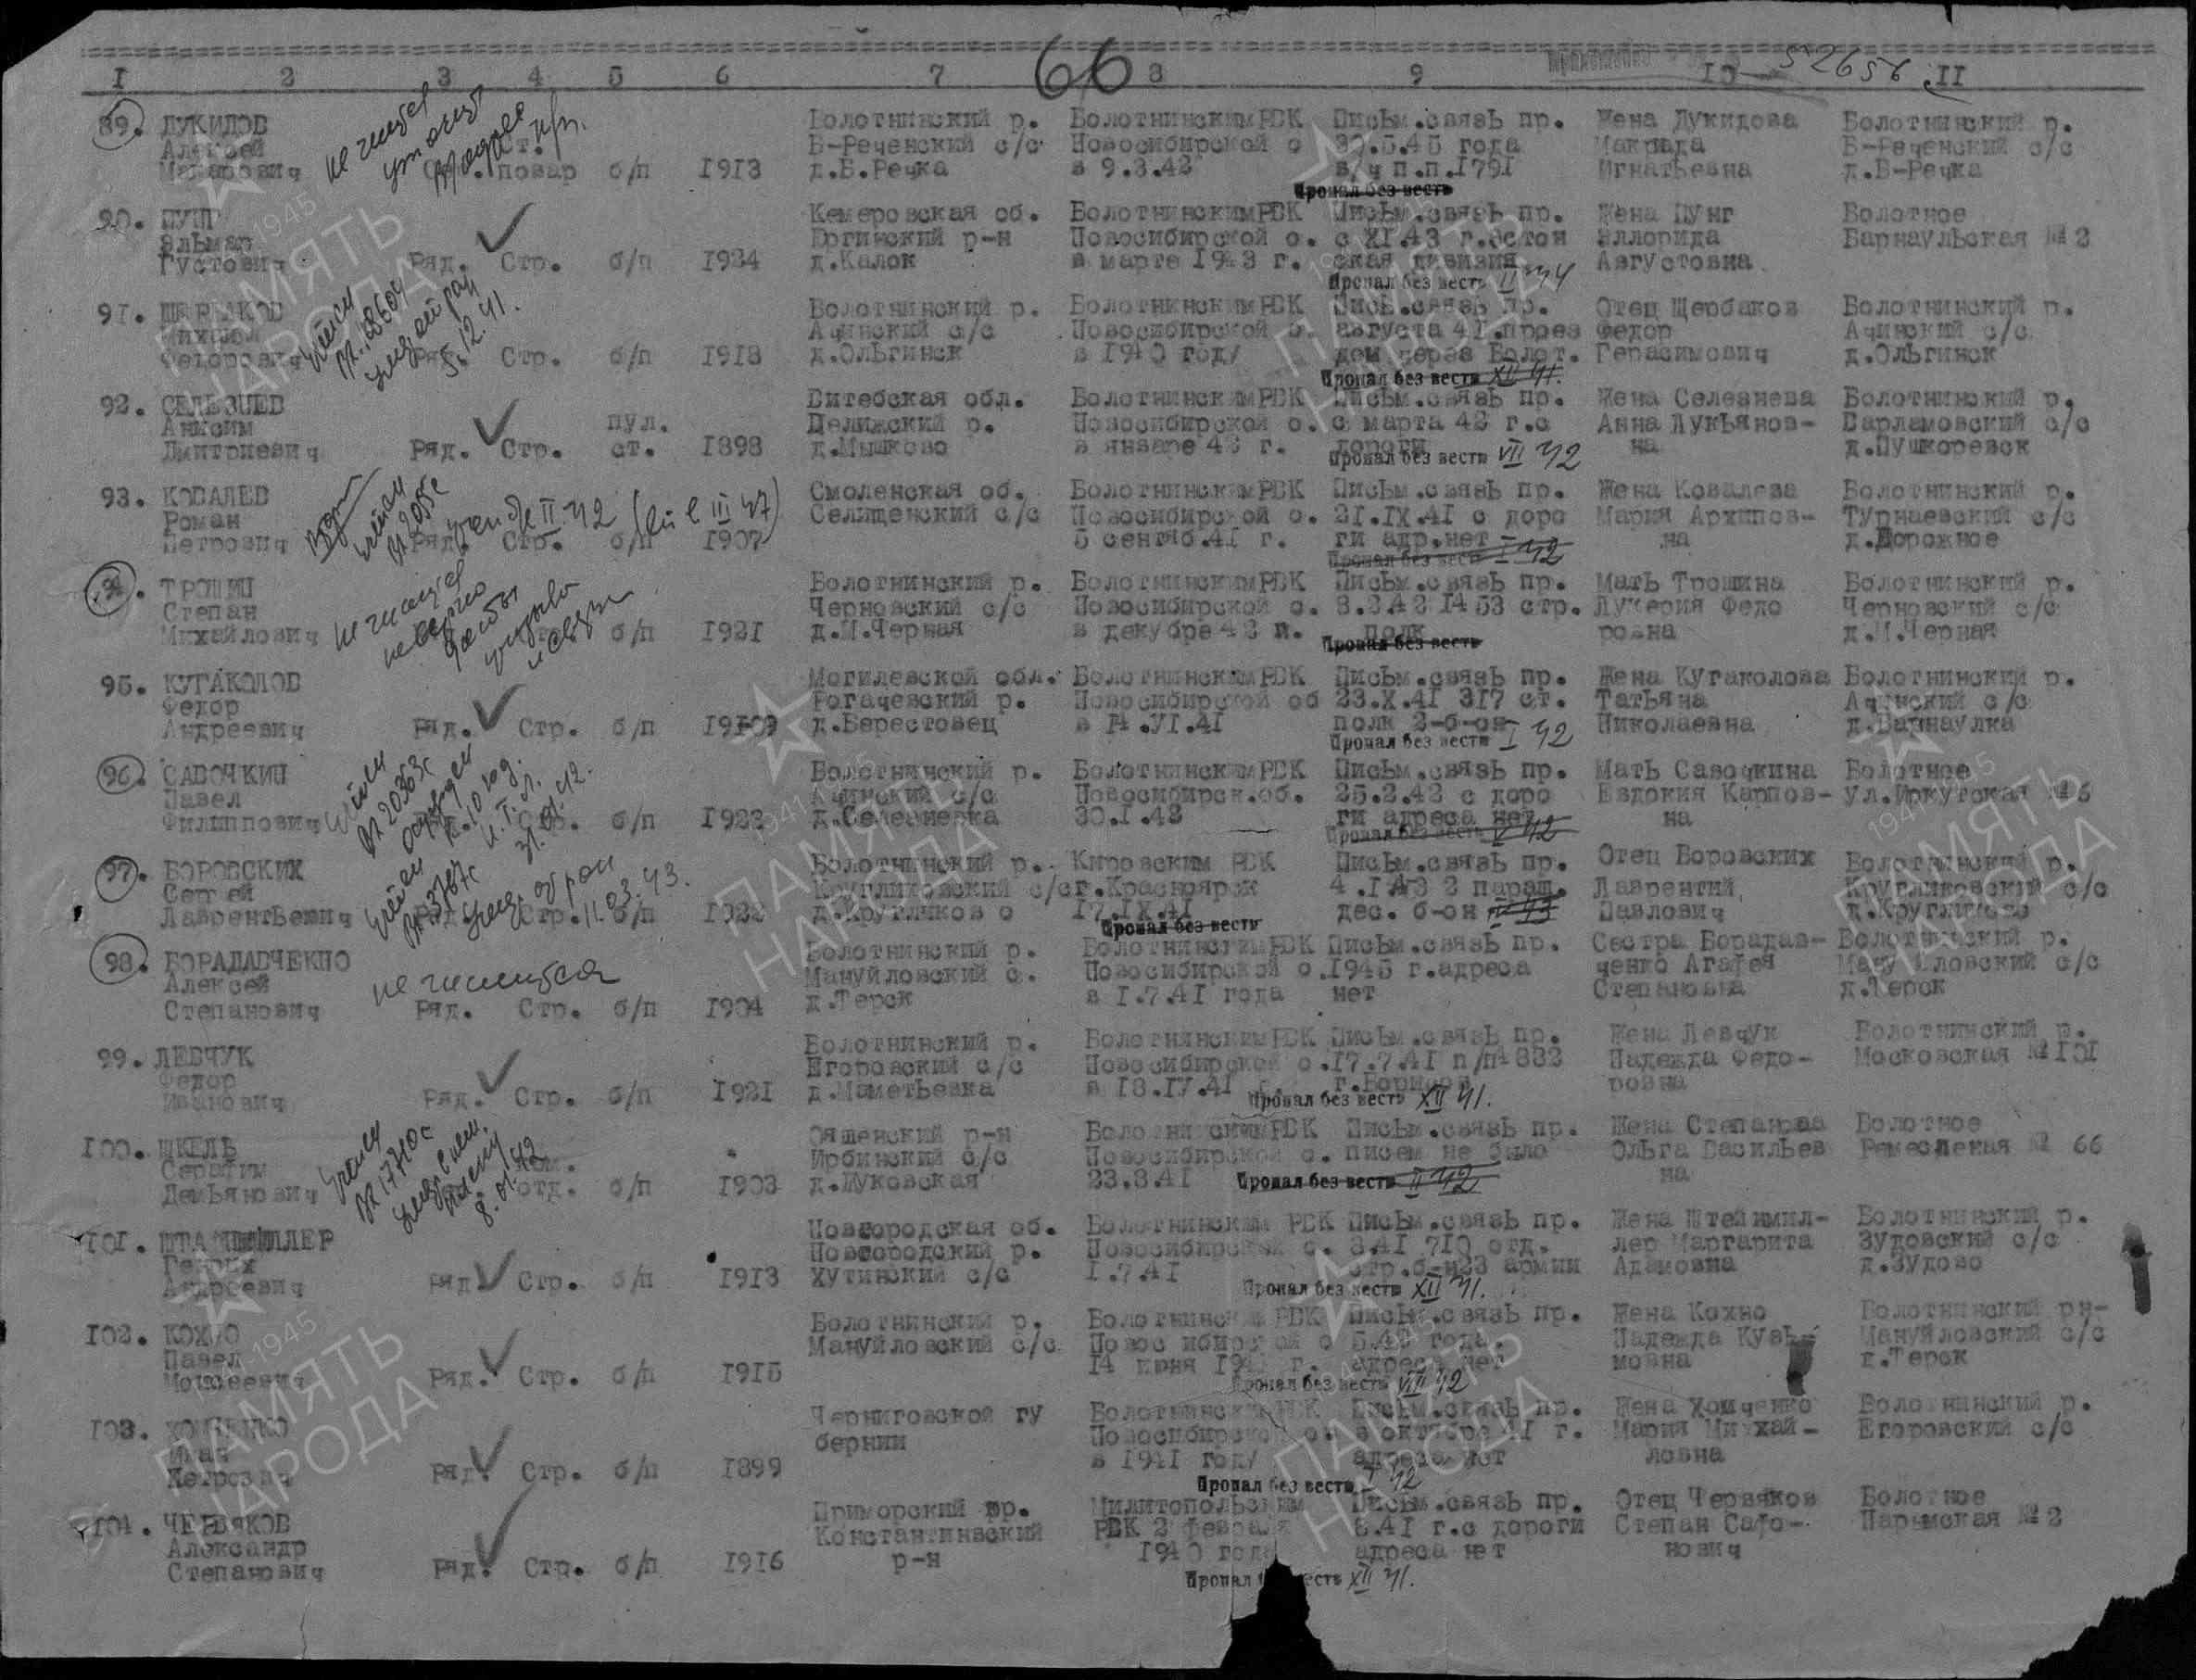 66
52656
I 2 3 4 5 6 7 8 9 10 II
89. ДУКИДОВ Болотнинский р. Болотнинским РВК Письм.связь пр. Жена Дукидова Болотнинский р.
Алексей Ст. В-Реченский с/с Новосибирской о 30.5.45 года Макрида В-Реченский с/с
Макарович повар б/п 1913 д.В.Речка в 9.3.42 в/ч п.п.1791 Игнатьевна д.В-Речка
не числится
Пропал без вести
90. ПУНГ Кемеровская об. Болотнинским РВК Письм.связь пр. Жена Пунг Болотное
Эльмар Юргинский р-н Новосибирской о. с XI.43 г.эстон Эллорида Барнаульская № 2
Густович Ряд. Стр. б/п 1924 д.Калок в марте 1943 г. ская дивизия Августовна
Пропал без вести II 44
91. ЩЕРБАКОВ Болотнинский р. Болотнинским РВК Письм.связь пр. Отец Щербаков Болотнинский р.
Михаил Ачинский с/с Новосибирской о. августа 41.проез Федор Ачинский с/с
Федорович Ряд. Стр. б/п 1918 д.Ольгинск в 1940 году дом через Болот. Герасимович д.Ольгинск
5.12.41.
Пропал без вести XII 41.
92. СЕЛЕЗНЕВ Витебская обл. Болотнинским РВК Письм.связь пр. Жена Селезнева Болотнинский р.
Анисим пул. р. Новосибирской о. с марта 42 г.с Анна Лукьянов- Варламовский с/с
Дмитриевич Ряд. Стр. ст. 1898 д.Мышково в январе 42 г. дороги на д.Пушкоревск
Пропал без вести VII 42
93. КОВАЛЕВ Смоленская об. Болотнинским РВК Письм.связь пр. Жена Ковалева Болотнинский р.
Роман Селищенский с/с Новосибирской о. 21.IX.41 с доро Мария Архипов- Турнаевский с/с
Петрович Ряд. Стр. б/п 1907 5 сентяб.41 г. ги адр.нет на д.Дорожное
Пропал без вести I 42
94. ТРОШИН Болотнинский р. Болотнинским РВК Письм.связь пр. Мать Трошина Болотнинский р.
Степан Черновский с/с Новосибирской о. 8.2.42 1453 стр. Лукерия Федо Черновский с/с
Михайлович б/п 1921 д.М.Черная в декубре 42 г. полк ровна д.М.Черная
не числится
Пропал без вести
95. КУГАКОЛОВ Могилевской обл. Болотнинским РВК Письм.связь пр. Жена Кугаколова Болотнинский р.
Федор Рогачевский р. Новосибирской об 23.X.41 317 ст. Татьяна Ачинский с/с
Андреевич Ряд. Стр. б/п 1909 д.Берестовец в 14.VI.41 полк 2-б-он Николаевна д.Барнаулка
Пропал без вести I 42
96. САВОЧКИН Болотнинский р. Болотнинским РВК Письм.связь пр. Мать Савочкина Болотное
Павел Ачинский с/с Новосибирск.об. 25.2.42 с доро Евдокия Карпов- ул.Иркутская № 6
Филиппович б/п 1922 д.Селезневка 30.I.42 ги адреса нет на
Пропал без вести V 42
97. БОРОВСКИХ Болотнинский р. Кировским РВК Письм.связь пр. Отец Боровских Болотнинский р.
Сергей Кругликовский с/с г.Красноярск 4.I.43 2 параш. Лаврентий Кругликовский с/с
Лаврентьевич Ряд. Стр. б/п 1922 д.Кругликово 17.IX.41 дес. б-он Павлович д.Кругликово
11.03.43.
Пропал без вести
98. БОРАДАВЧЕКПО Болотнинский р. Болотнинским РВК Письм.связь пр. Сестра Борадав- Болотнинский р.
Алексей Мануйловский с. Новосибирской о. 1945 г.адреса ченко Агафея Мануйловский с/с
Степанович Ряд. Стр. б/п 1904 д.Терск в 1.7.41 года нет Степановна д.Терок
не числится
99. ЛЕВЧУК Болотнинский р. Болотнинским РВК Письм.связь пр. Жена Левчук Болотнинский р.
Федор Егоровский с/с Новосибирской о. 17.7.41 п/п 882 Надежда Федо- Московская № 101
Иванович Ряд. Стр. б/п 1921 д.Маметьевка в 18.IV.41 г.Борисов ровна
Пропал без вести XII 41.
100. ШКЕЛЬ р-н Болотнинским РВК Письм.связь пр. Жена Степанова Болотное
Серафим Ирбинский с/с Новосибирской о. писем не было Ольга Васильев Ремеслекая № 66
Демьянович отд. б/п 1903 д.Жуковская 23.8.41 на
8.01.42
Пропал без вести II 42
101. Новгородская об. Болотнинским РВК Письм.связь пр. Жена Штейнмил- Болотнинский р.
Генрих Новгородский р. Новосибирской о. 8.41 710 отд. лер Маргарита Зудовский с/с
Андреевич Ряд. Стр. б/п 1913 Хутинский с/с 1.7.41 стр.б-н23 армии Адамовна д.Зудово
Пропал без вести XII 41.
102. КОХНО Болотнинский р. Болотнинским РВК Письм.связь пр. Жена Кохно Болотнинский рн-
Павел Мануйловский с/с Новосибирской о 5.42 года. Надежда Кузь Мануйловский с/с
Моисеевич Ряд. Стр. б/п 1915 14 июня 1941 г. адреса нет мовна д.Терок
Пропал без вести VIII 42
103. ХОМЧЕНКО Черниговской гу Болотнинским РВК Письм.связь пр. Жена Хомченко Болотнинский р.
Иван бернии Новосибирской о. в октябре 41 г. Мария Михай- Егоровский с/с
Петрович Ряд. Стр. б/п 1899 в 1941 году адреса нет ловна
Пропал без вести I 42
104. ЧЕРВЯКОВ Приморский кр. Милитопольским Письм.связь пр. Отец Червяков Болотное
Александр Константинвский РВК 2 февраля 8.41 г.с дороги Степан Сафо- Парымская № 2
Степанович Ряд. Стр. б/п 1916 р-н 1940 года адреса нет нович
Пропал без вести XII 41.